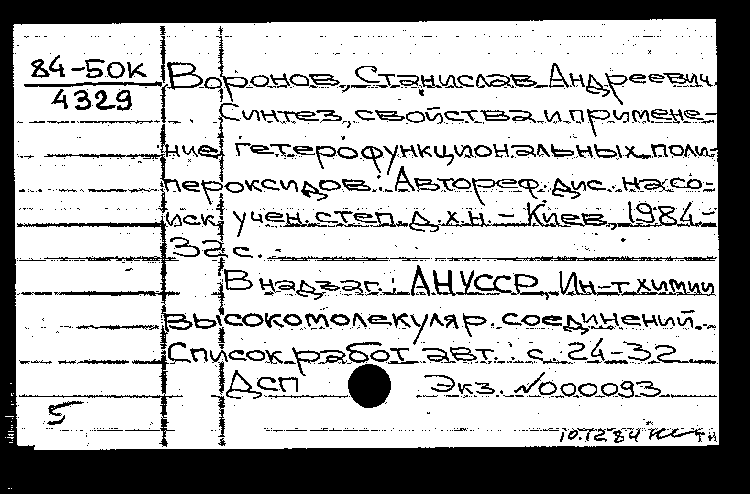 84-5ОК
4329
Воронов, Станислав Андреевич.
Синтез, свойства и примене-
ние гетерофункциональных поли-
пероксидов : Автореф. дис. на со-
иск. учен. степ. д.х.н. - Киев, 1984. -
32 с.
В надзаг.: АН УССР, Ин-т химии
высокомолекуляр. соединений.
Список работ авт.: с. 24-32
ДСП Экз. №000093
5
10.12.84